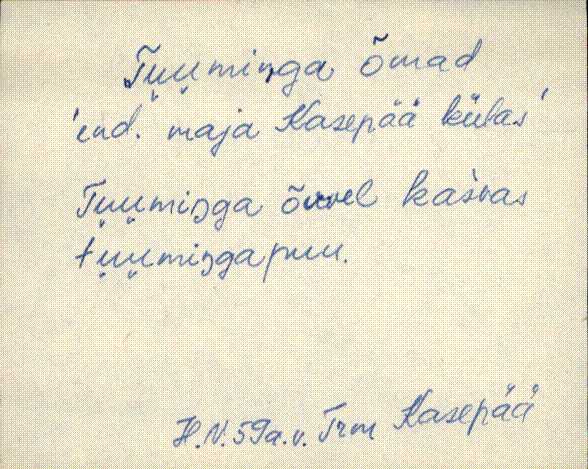 Tu̬u̬miŋga õmad
'end. maja Kasepää külas'
Tu̬u̬miŋga õuvel kašvas
tu̬u̬miŋgapuu.
H.N. 59a.v. Trm Kasepää